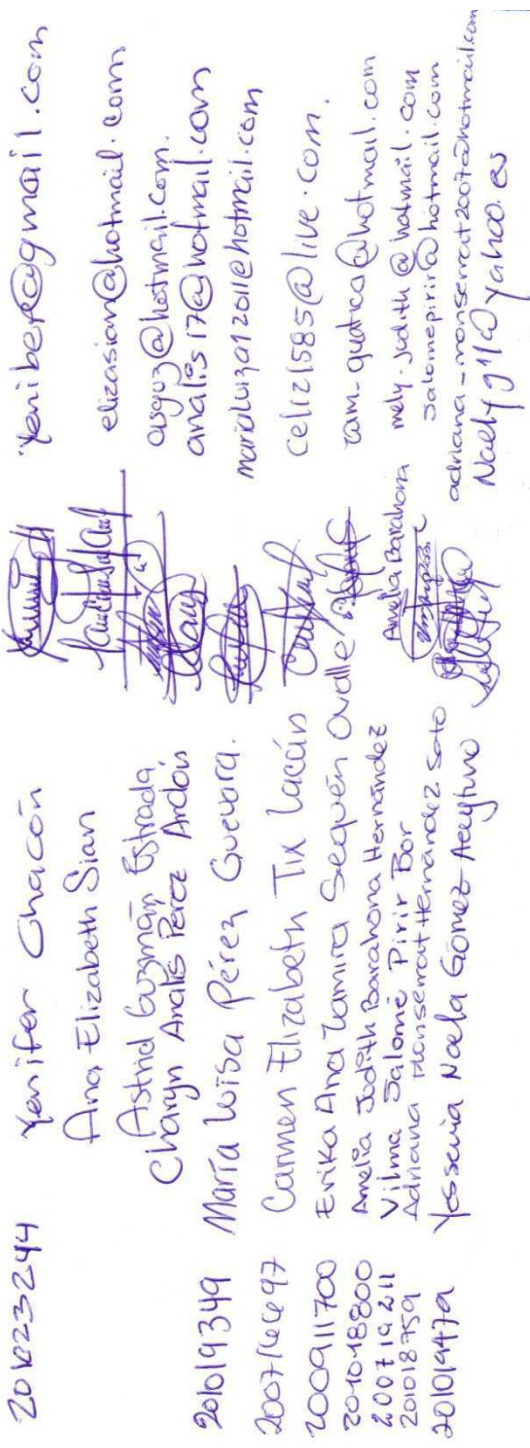 201023244 Yenifer Chacón Yenibere@gmail.com
Ana Elizabeth Sian elizasian@hotmail.com
Astrid Guzmán Estrada asguz@hotmail.com.
Charyn Analis Pérez Ardón analis17@hotmail.com
201019349 María Luisa Pérez Guevara. marialuiza12011@hotmail.com
Carmen Elizabeth Tix Vacún celiz1585@live.com.
200911700 Erika Ana Ramira Sequén Ovalle @hotmail.com
201018800 Amelia Judith Barahona Hernández Amelia Barahona mely-Judith@hotmail.com
200719211 Vilma Salomé Pirir Bor salomepirir@hotmail.com
201018759 Adriana Monserrat Hernández Soto adriana-monserrat2007@hotmail.com
Yessenia Noela Gómez Aceytuno Naelyg11@yahoo.es